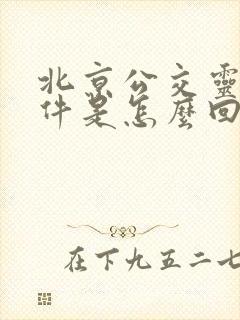 北京公交靈
件是怎麼回
在下九五二七